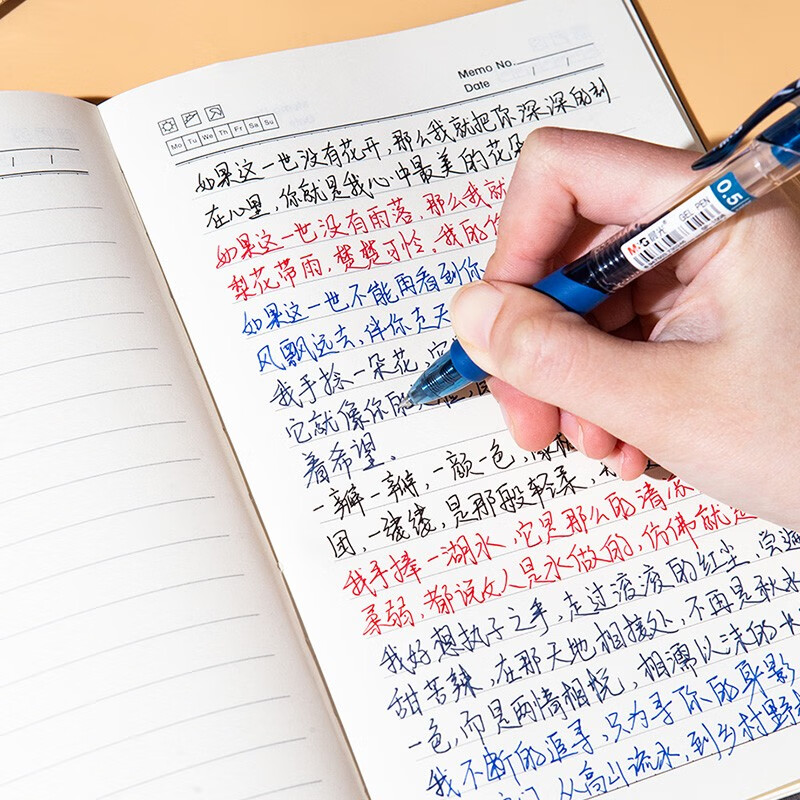 Memo No.
Date / /
Mo Tu We Th Fr Sa Su
/ /
如果这一世没有花开,那么我就把你深深的刻
在心里,你就是我心中最美的花
如果这一世没有雨落,那么我就
梨花带雨,楚楚可怜,我的你
如果这一世不能再看到你
风飘远去,伴你走天
我手捻一朵花,它
它就像你的
着希望。
一瓣一瓣,一颜一色,
团,一缕缕,是那般轻柔,
我手捧一湖水,它是那么的清凉
柔弱,都说女人是水做的,仿佛就是
我好想执子之手,走过滚滚的红尘,尝遍
甜苦辣,在那天地相接处,不再是秋水
一色,而是两情相悦,相濡以沫的
我不断的追寻,只为寻你的身影
从高山流水,到乡村野
0.5
M&G 晨光
GEL PEN